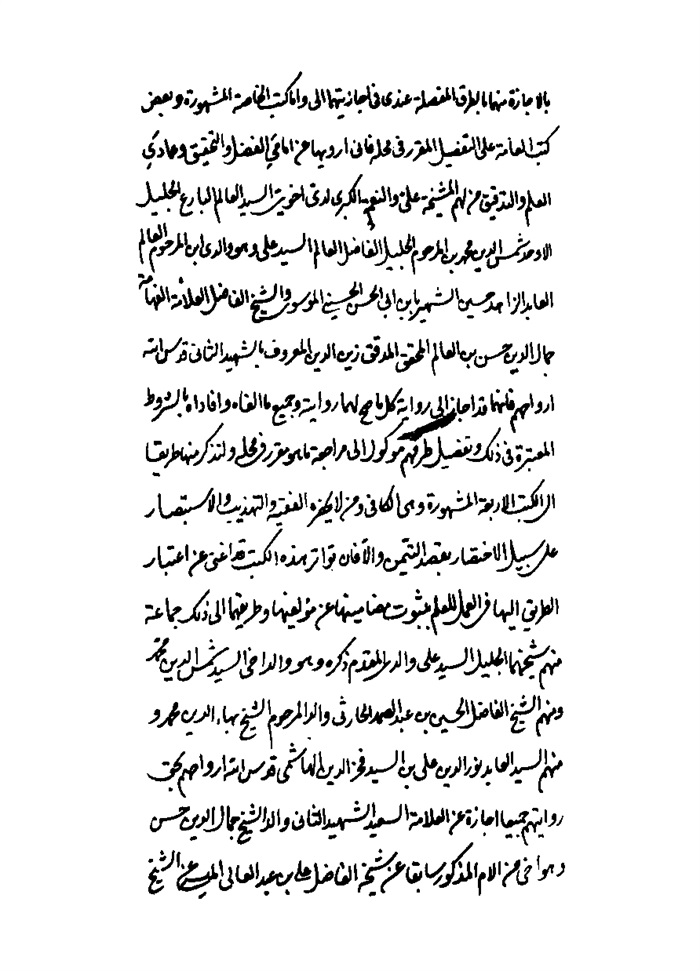 بالاجازة منهما بالطرق المفصلة عندى فى اجازيتهما الى واما كتب الخاصة المشهورة وبعض
كتب العامة على التفصيل المقرر فى محله فانى ارويها عن امامي الفضل والتحقيق وعمادي
العلم والتدقيق من لهم المشيخة علىّ والنعم الكبرى لدى اخوى السيد العالم البارع الجليل
الاوحد شمس الدين محمد بن المرحوم الجليل الفاضل العالم السيد على وهو والدى ابن المرحوم العالم
العابد الزاهد حسين الشهير بابن ابى الحسن الحسينى الموسوى والشيخ الفاضل العلامة الفهامة
جمال الدين حسن بن العالم المحقق المدقق زين الدين المعروف بالشهيد الثانى قدس الله
ارواحهم فانهما قد اجازا لى رواية كل ما صح لهما روايته وجميع ما الفاه وافاداه بالشروط
المعتبرة فى ذلك وتفصيل طرقهم موكول الى مراجعة ما هو مقرر فى محله ولنذكر منها طريقا
الى الكتب الاربعة المشهورة وهى الكافى ومن لا يحضره الفقيه والتهذيب والاستبصار
على سبيل الاختصار بقصد التيمن والا فان تواتر هذه الكتب قد اغنى عن اعتبار
الطريق اليها فى العمل للعلم بثبوت مضامينها عن مؤلفيها وطريقهما الى ذلك جماعة
منهم شيخهما الجليل السيد على والدى المقدم ذكره وهو والد اخى السيد شمس الدين محمد
ومنهم الشيخ الفاضل الحسين بن عبد الصمد الحارثى والد المرحوم الشيخ بهاء الدين محمد و
منهم السيد العابد نور الدين على بن السيد فخر الدين الهاشمى قدس الله ارواحهم بحق
روايتهم جميعا اجازة عن العلامة السعيد الشهيد الثانى والد الشيخ جمال الدين حسن
وهو اخى من الام المذكور سابقا عن شيخه الفاضل على بن عبد العالى الميسى عن الشيخ